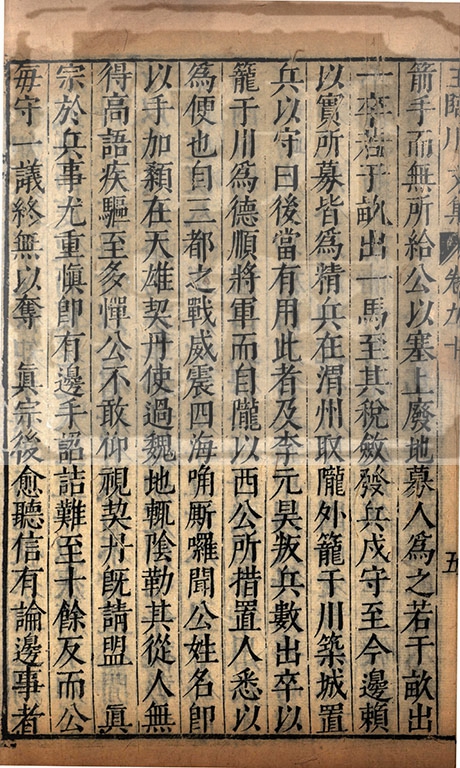 王臨川文集 卷九十 五
箭手而無所給公以塞上廢地募人爲之若干畝出
一卒若于畝出一馬至其稅斂發兵戍守至今邊賴
以實所募皆爲精兵在渭州取隴外籠于川築城置
兵以守曰後當有用此者及李元昊叛兵數出卒以
籠于川爲德順將軍而自隴以西公所措置人悉以
爲便也自三都之戰威震四海唃厮囉聞公姓名卽
以手加顙在天雄契丹使過魏地輒陰勒其從人無
得高語疾驅至多憚公不敢仰視契丹旣請盟 眞
宗於兵事尤重愼卽有邊手詔詰難至十餘反而公
每守一議終無以奪 眞宗後愈聽信有論邊事者